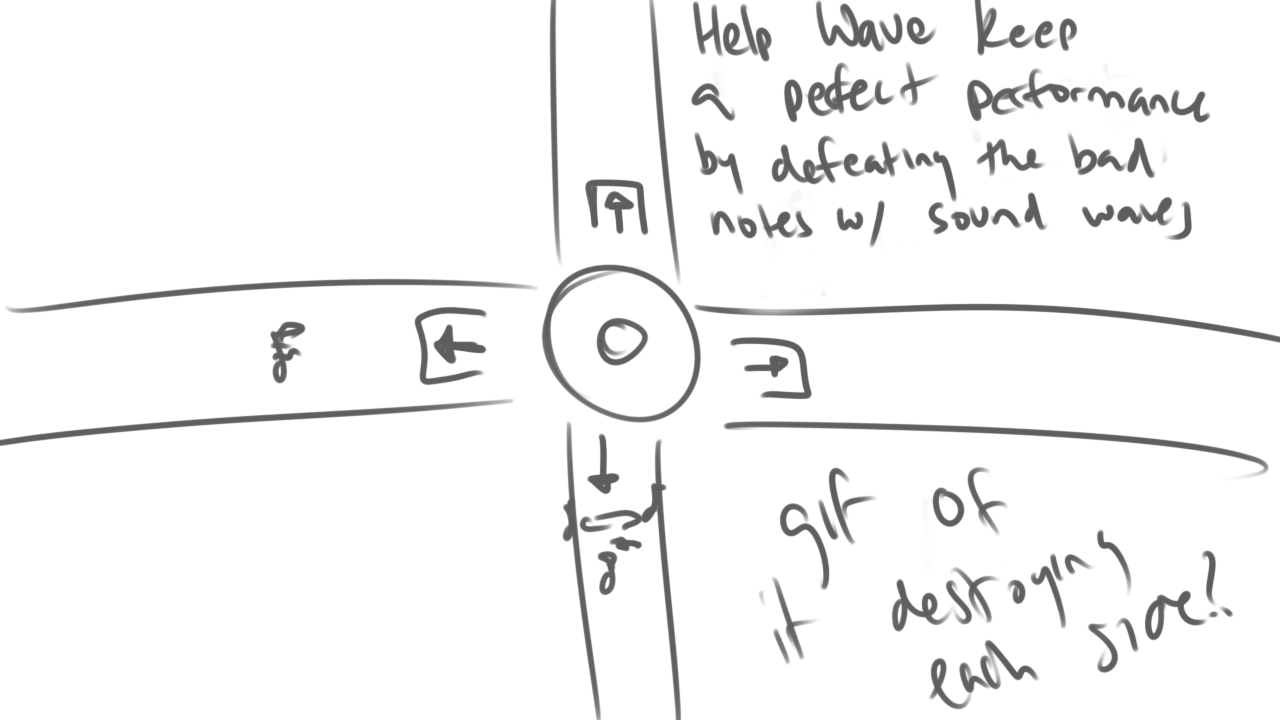 Help Wave keep
a pefect performance
by defeating the bad
notes w/ sound waves
gif of
it destroying
each side?